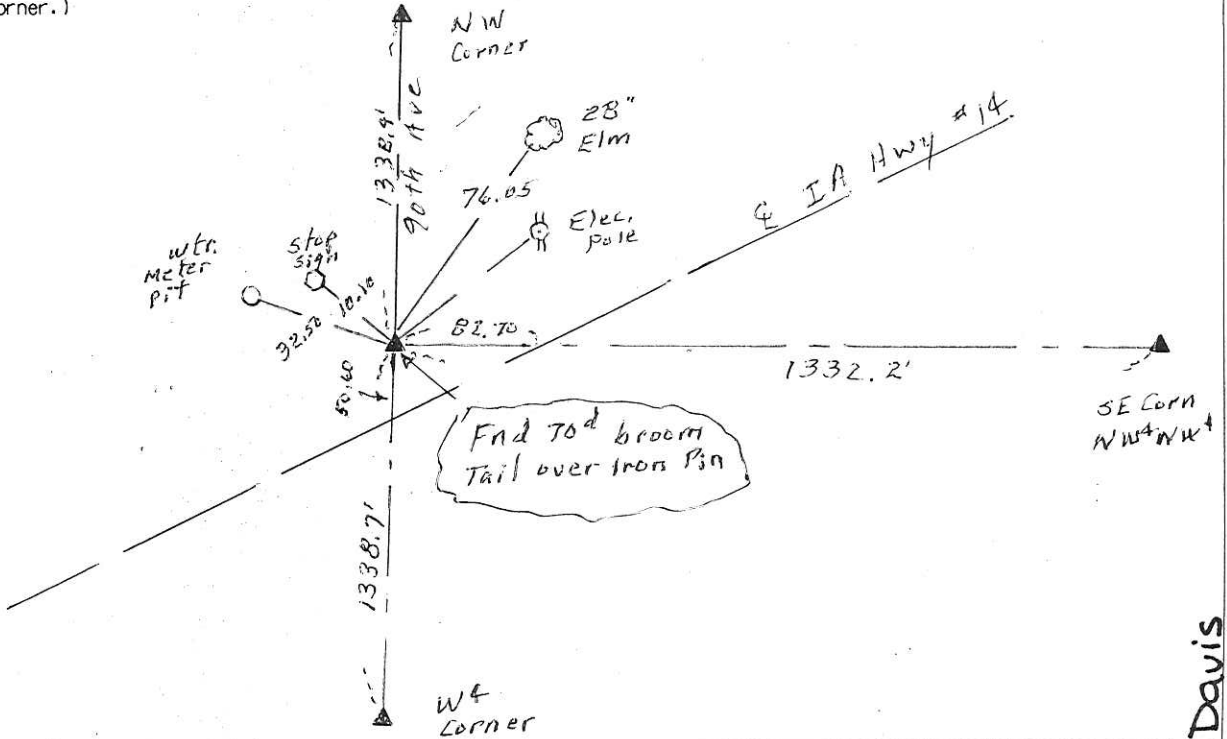 orner.)
NW
Corner
1338.9'
90th Ave
28"
Elm
76.05
Elec.
Pole
℄ IA Hwy #14
wtr.
Meter
pit
Stop
Sign
10.10
32.50
82.70
50.60
1332.2'
SE Corn
NW4 NW4
Fnd 70d broom
Tail over Iron Pin
1338.7'
W4
Corner
Davis